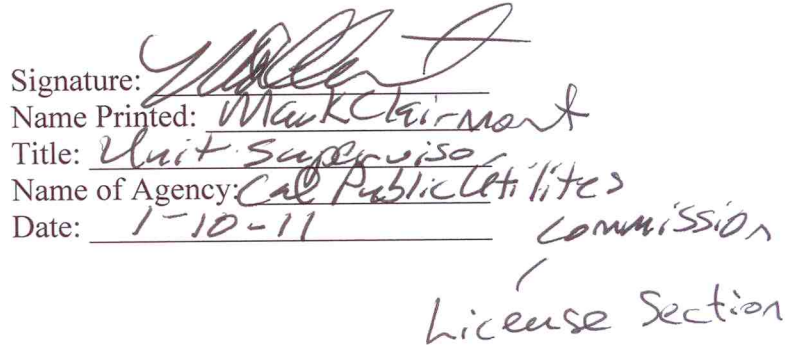 Signature:
Name Printed: Mark Clairmont
Title: Unit Supervisor
Name of Agency: Cal Public Utilites
Date: 1-10-11
Commission
License Section